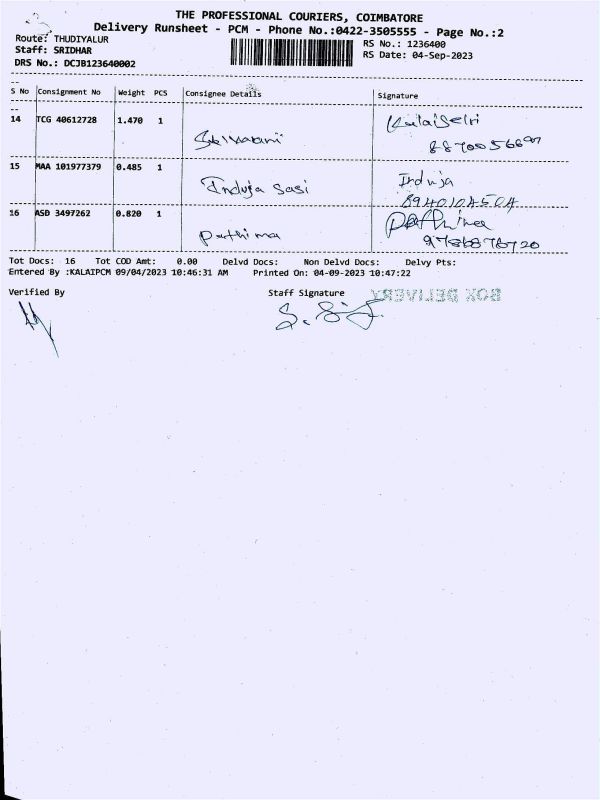 THE PROFESSIONAL COURIERS, COIMBATORE
Delivery Runsheet - PCM - Phone No.:0422-3505555 - Page No.:2
Route: THUDIYALUR
RS No.: 1236400
Staff: SRIDHAR
RS Date: 04-Sep-2023
DRS No.: DCJB123640002
S No Consignment No Weight PCS Consignee Details Signature
14 TCG 40612728 1.470 1
15 MAA 101977379 0.485 1 Induja Sasi Induja
16 ASD 3497262 0.820 1 Pathima Pathima
Tot Docs: 16 Tot COD Amt: 0.00 Delvd Docs: Non Delvd Docs: Delvy Pts:
Entered By :KALAIPCM 09/04/2023 10:46:31 AM Printed On: 04-09-2023 10:47:22
Verified By Staff Signature BOX DELIVERY